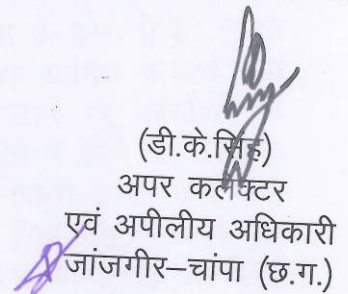 (डी.के.सिंह)
अपर कलेक्टर
एवं अपीलीय अधिकारी
जांजगीर–चांपा (छ.ग.)